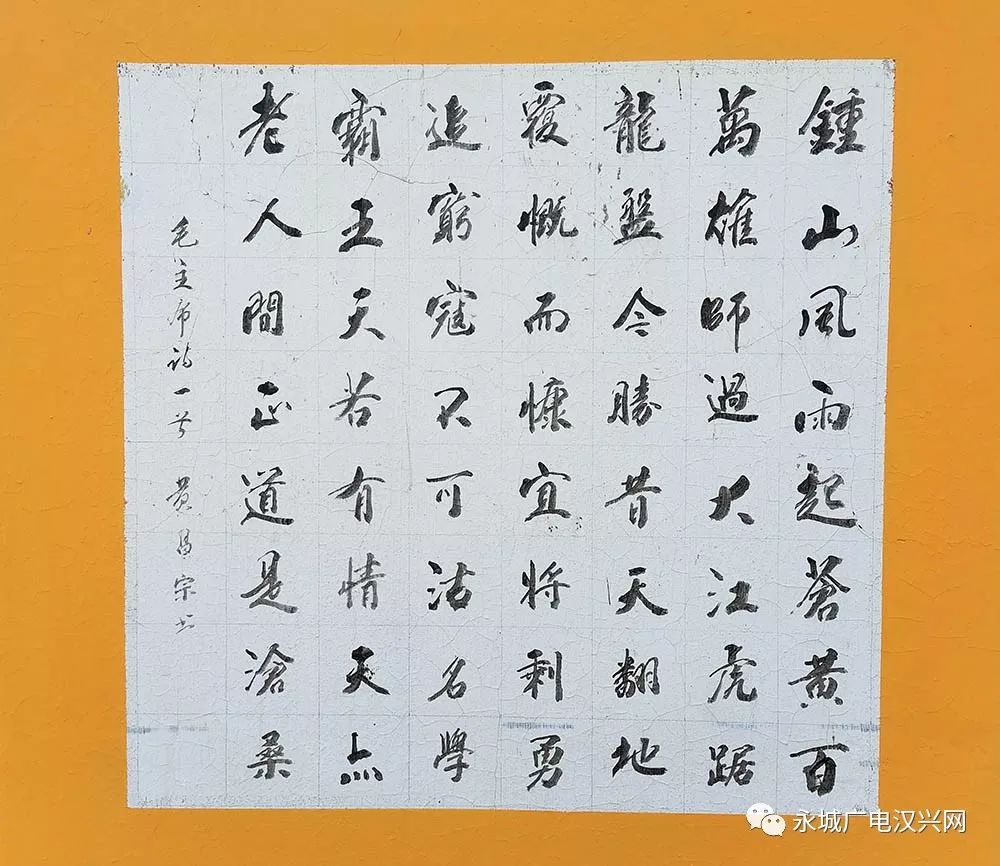 鍾山風雨起蒼黄百
萬雄師過大江虎踞
龍盤今勝昔天翻地
覆慨而慷宜将剩勇
追窮寇不可沽名學
霸王天若有情天亦
老人間正道是滄桑
毛主席诗一首 黄昌宗书
永城广电汉兴网